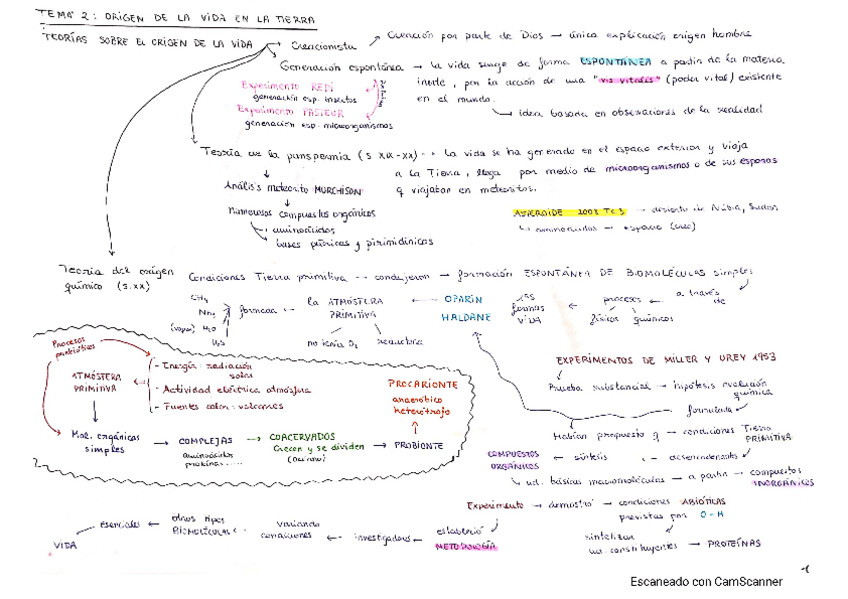 TEMA 2: ORIGEN DE LA VIDA EN LA TIERRA
TEORÍAS SOBRE EL ORIGEN DE LA VIDA
Creacionista
Creación por parte de Dios → única explicación origen hombre
Generación espontánea → la vida surge de forma ESPONTÁNEA a partir de la materia
inerte, por la acción de una "vis vitalis" (poder vital) existente
en el mundo.
idea basada en observaciones de la realidad
Experimento REDI
generación esp. insectos
Experimento PASTEUR
generación esp. microorganismos
Teoría de la panspermia (s XIX-XX) → La vida se ha generado en el espacio exterior y viaja
a la Tierra, llega por medio de microorganismos o de sus esporas
q viajaban en meteoritos.
Análisis meteorito MURCHISON
Numerosos compuestos orgánicos
aminoácidos
bases púricas y pirimidínicas
ASTEROIDE 2008 TC3 → desierto de Nubia, Sudán
aminoácidos → espacio
Teoría del origen
químico (s.XX)
Condiciones Tierra primitiva → condujeron → formación ESPONTÁNEA DE BIOMOLÉCULAS simples
a través
de
procesos
físicos químicos
formas
VIDA
OPARIN
HALDANE
la ATMÓSFERA
PRIMITIVA
no tenía O₂
reductora
forman
CH₄
NH₃
(vapor) H₂O
H₂S
Procesos
prebióticos
ATMÓSFERA
PRIMITIVA
- Energía: radiación
solar
- Actividad eléctrica atmósfera
- Fuentes calor: volcanes
Mol. orgánicas
simples
COMPLEJAS
aminoácidos
proteínas.....
COACERVADOS
Crecen y se dividen
(Oparin)
PROBIONTE
PROCARIONTE
anaerótico
heterótrofo
EXPERIMENTOS DE MILLER Y UREY 1953
Prueba substancial → hipótesis evolución
química
formulada
Habían propuesto q → condiciones Tierra
PRIMITIVA
desencadenante
síntesis
COMPUESTOS
ORGÁNICOS
ud. básicas macromoléculas → a partir → compuestos
INORGÁNICOS
Experimento → demostró → condiciones ABIÓTICAS
previstas por O-H
sintetizar
ud. constituyentes → PROTEÍNAS
estableció
METODOLOGÍA
investigadores
variando
condiciones
otros tipos
BIOMOLÉCULAS
esenciales
VIDA
1
Escaneado con CamScanner